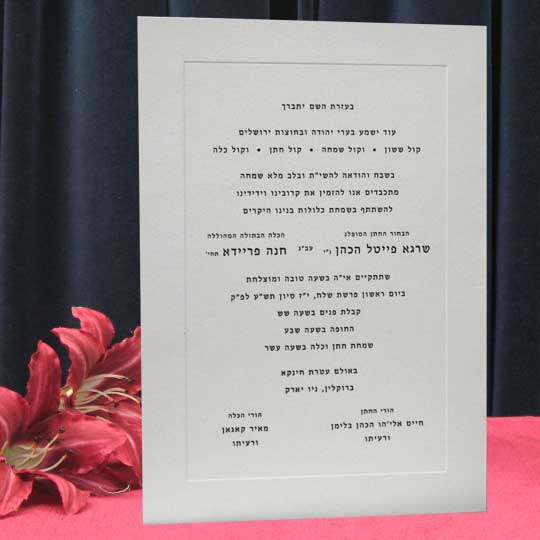 בעזרת השם יתברך
עוד ישמע בערי יהודה ובחוצות ירושלים
קול ששון • וקול שמחה • קול חתן • וקול כלה
בשבח והודאה להשי"ת ובלב מלא שמחה
מתכבדים אנו להזמין את קרובינו וידידינו
להשתתף בשמחת כלולות בנינו היקרים
הבחור החתן המופלג הכלה הבתולה המהוללה
שרגא פייטל הכהן ני' עב"ג חנה פריידא תחי'
שתתקיים אי"ה בשעה טובה ומוצלחת
ביום ראשון פרשת שלח, י"ז סיון תשע"ע לפ"ק
קבלת פנים בשעה שש
החופה בשעה שבע
שמחת חתן וכלה בשעה עשר
באולם עטרת חינקא
ברוקלין, ניו יארק
הורי החתן הורי הכלה
חיים אלי'הו הכהן בלימן מאיר קאגאן
ורעיתו ורעיתו